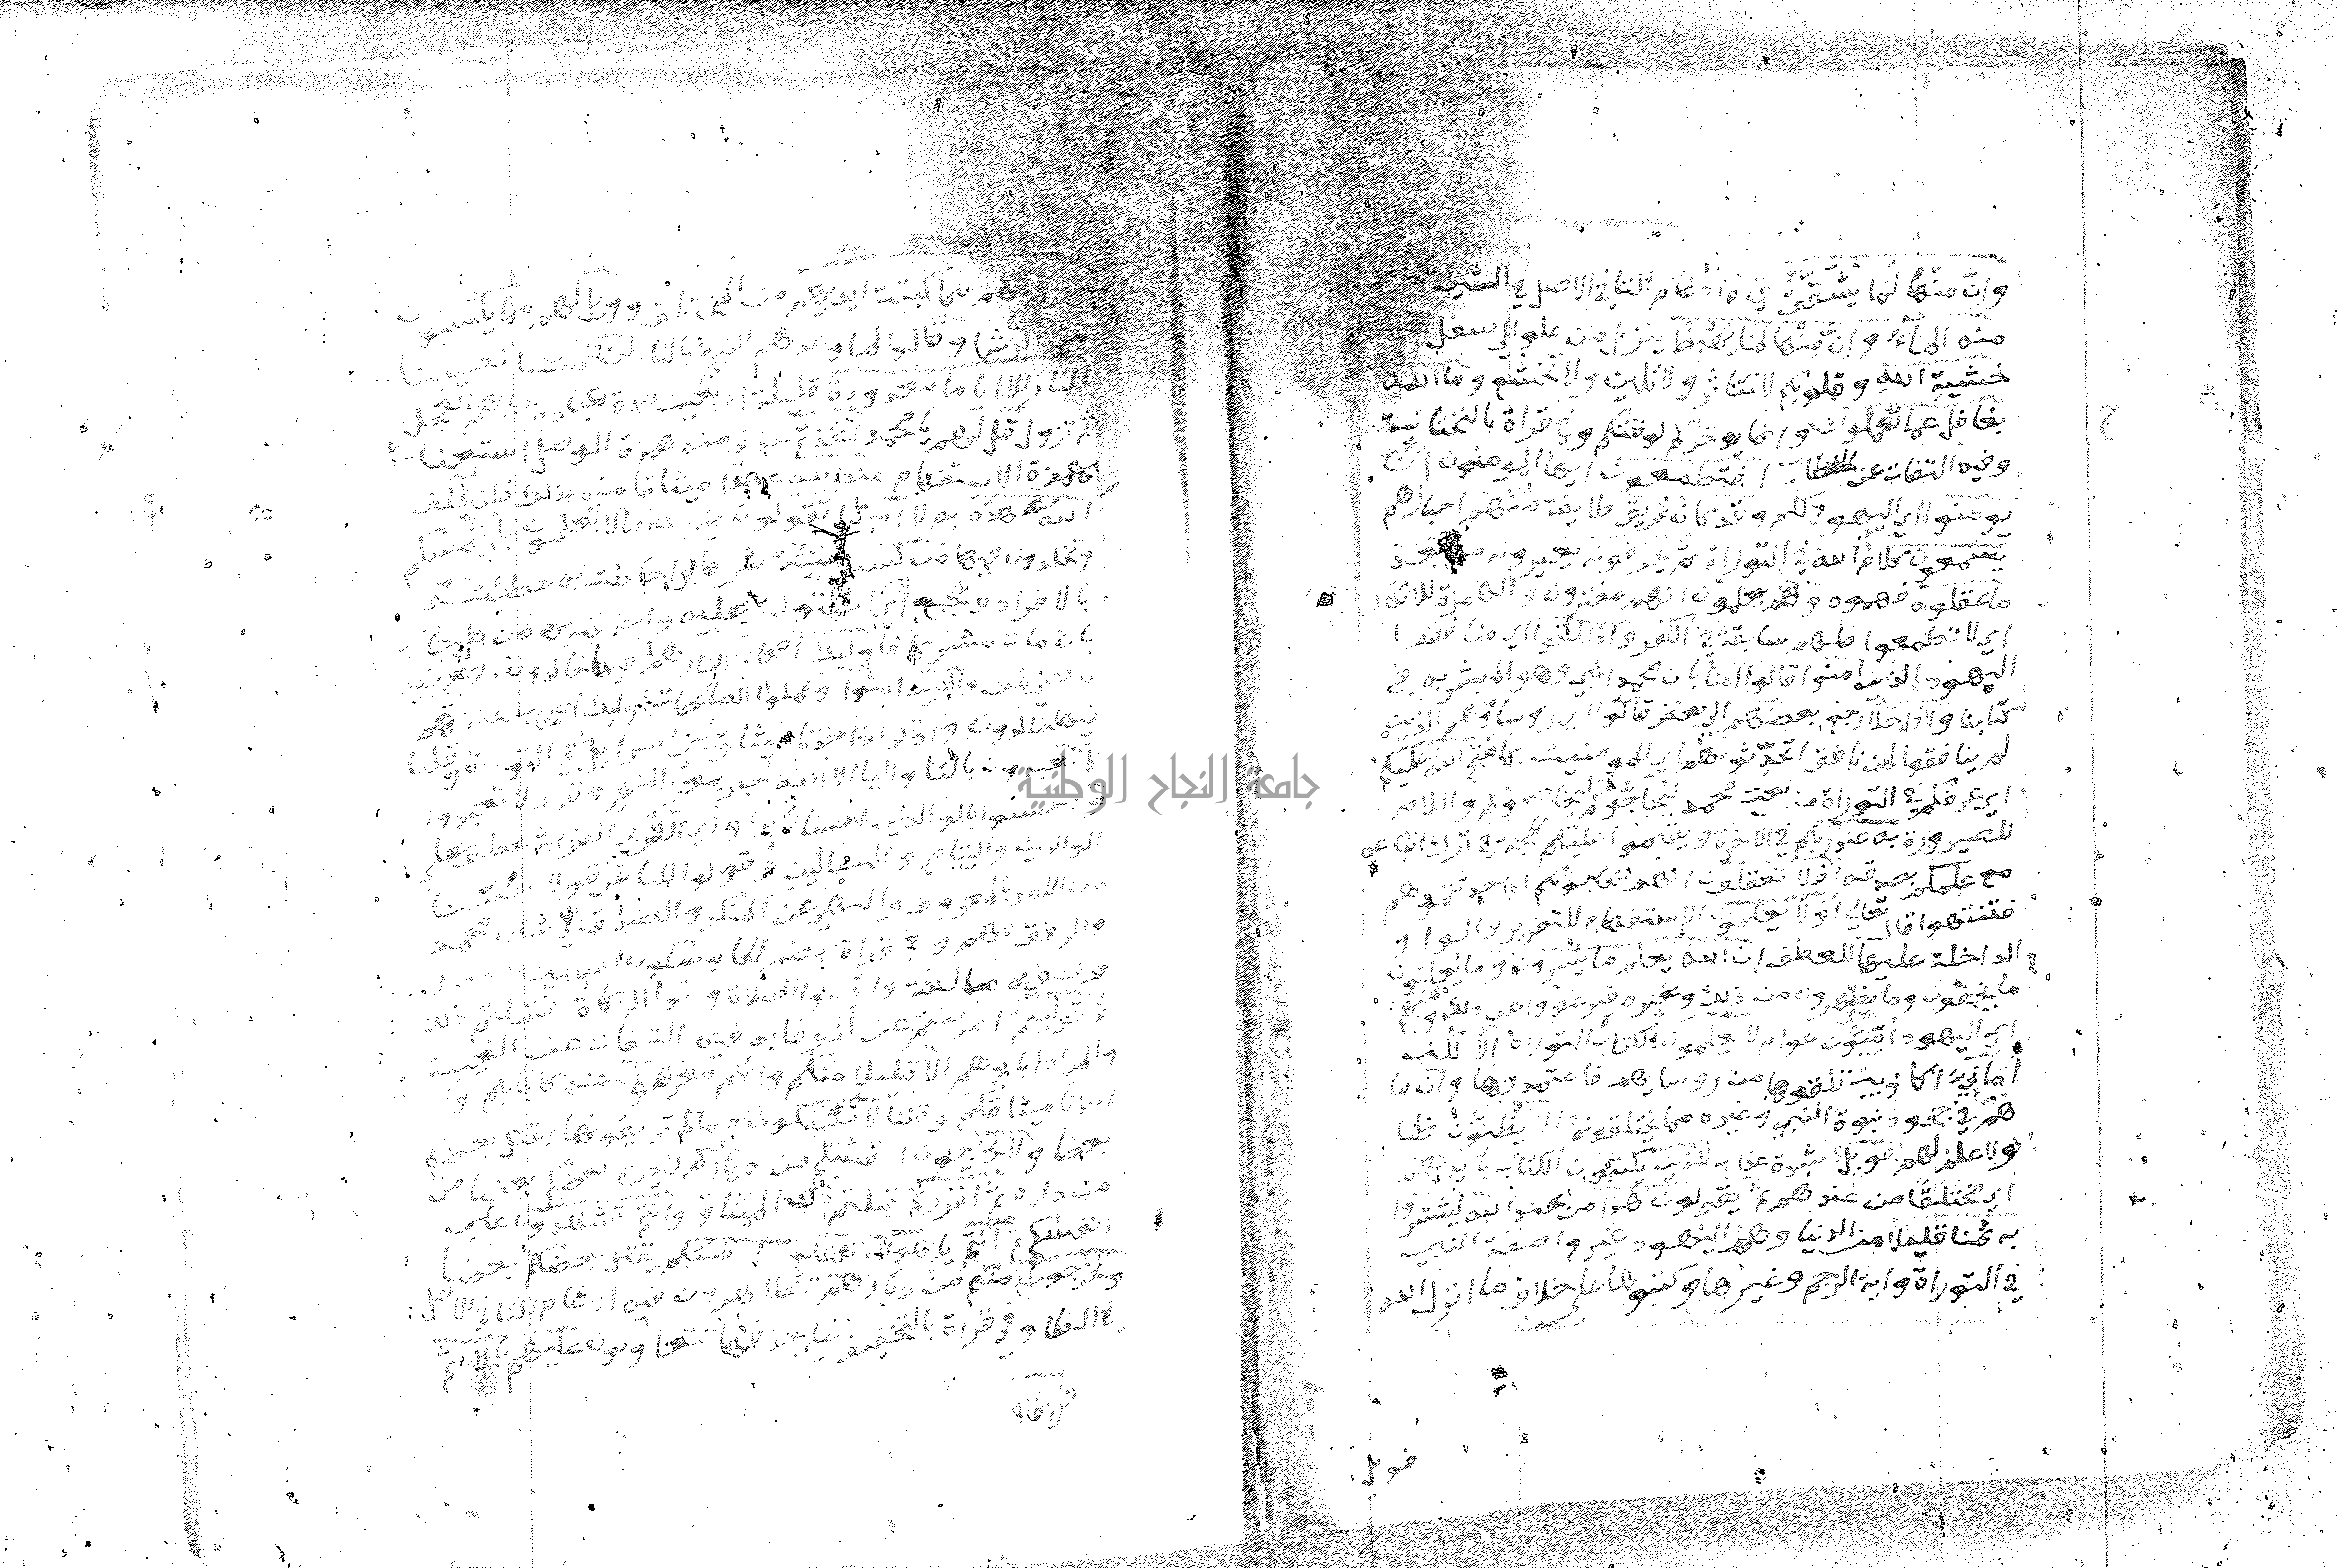 وان منها لما يشقق فيه ادغام التا في الاصل في الشين
منه المآء وان منها لما يهبط ينزل من علو الي سفل
خشية الله وقلوبكم لا تتاثر ولا تلين ولا تخشع وما الله
بغافل عما تعملون وانما يوخركم لوقتكم وفي قراة بالتحتانية
وفيه التفات عن الخطاب افتطمعون ايها المومنون ان
يومنوا اي اليهود لكم وقد كان فريق طايفة منهم احبارهم
يسمعون كلام الله في التوراة ثم يحرفونه يغيرونه من بعد
ما عقلوه فهموه وهم يعلمون انهم مفترون والهمزة للانكار
اي لا تطمعوا فلهم سابقة في الكفر واذا لقوا اي منافقوا
اليهود الذين امنوا قالوا امنا بان محمدا نبي وهو المبشر به في
كتابنا واذا خلا رجع بعضهم الي بعض قالوا اي روساوهم الذين
لم ينافقوا لمن نافق اتحدثونهم اي المومنين بما فتح الله عليكم
اي عرفكم في التوراة من نعت محمد ليحاجوكم ليخاصموكم واللام
للصيرورة به عند ربكم في الاخرة ويقيموا عليكم الحجة في ترك اتباعه
مع علمكم بصدقه افلا تعقلون انهم يحاجونكم اذا حدثتموهم
فتنتهوا قال تعالي اولا يعلمون الاستفهام للتقرير والواو
الداخلة عليها للعطف ان الله يعلم ما يسرون وما يعلنون
ما يخفون وما يظهرون من ذلك وغيره فيرعووا عن ذلك ومنهم
اي اليهود اميون عوام لا يعلمون الكتاب التوراة الا لكن
اماني اكاذيب تلقوها من روسايهم فاعتمدوها وان ما
هم في جحود نبوة النبي وغيره مما يختلقونه الا يظنون ظنا
ولا علم لهم فويل شدة عذاب للذين يكتبون الكتاب بايديهم
اي مختلقا من عندهم ثم يقولون هذا من عند الله ليشتروا
به ثمنا قليلا من الدنيا وهم اليهود غيروا صفة النبي
في التوراة واية الرجم وغيرها وكتبوها علي خلاف ما انزل الله
فويل
فويل لهم مما كتبت ايديهم من المختلق وويل لهم مما يكسبون
من الرشا وقالوا لما وعدهم النبي بالنار لن تمسنا تصيبنا
النار الا اياما معدودة قليلة اربعين مدة عبادة ابايهم العجل
ثم تزول قل لهم يا محمد اتخذتم حذف منه همزة الوصل استغنا
بهمزة الاستفهام عند الله عهدا ميثاقا منه بذلك فلن يخلف
الله عهده به لا ام بل تقولون علي الله ما لا تعلمون بلي تمسكم
وتخلدون فيها من كسب سيئة شركا واحاطت به خطيئته
بالافراد والجمع اي استولت عليه واحدقت به من كل جانب
بان مات مشركا فاوليك اصحاب النار هم فيها خالدون روعي فيه
معني من والذين امنوا وعملوا الصالحات اوليك اصحاب الجنة هم
فيها خالدون واذكر اذ اخذنا ميثاق بني اسرايل في التوراة وقلنا
لا تعبدون بالتا واليا الا الله خبر بمعني النهي وقري لا تعبدوا
جامعة النجاح الوطنية
واحسنوا بالوالدين احسانا برا وذي القربي القرابة عطف علي
الوالدين واليتامي والمساكين وقولوا للناس قولا حسنا
من الامر بالمعروف والنهي عن المنكر والصدق في شان محمد
والرفق بهم وفي قراة بضم الحا وسكون السين مصدر
وصف به مبالغة واقيموا الصلاة واتوا الزكاة فقبلتم ذلك
ثم توليتم اعرضتم عن الوفا به فيه التفات عن الغيبة
والمراد اباوهم الا قليلا منكم وانتم معرضون عنه كابايكم و
اخذنا ميثاقكم وقلنا لا تسفكون دماكم تريقونها بقتل بعضكم
بعضا ولا تخرجون انفسكم من دياركم لا يخرج بعضكم بعضا من
من داره ثم اقررتم قبلتم ذلك الميثاق وانتم تشهدون علي
انفسكم ثم انتم يا هولاء تقتلون انفسكم يقتل بعضكم بعضا
وتخرجون منكم من ديارهم تظاهرون فيه ادغام التا في الاصل
في الظا وفي قراة بالتخفيف علي حذفها تتعاونون عليهم بالاثم